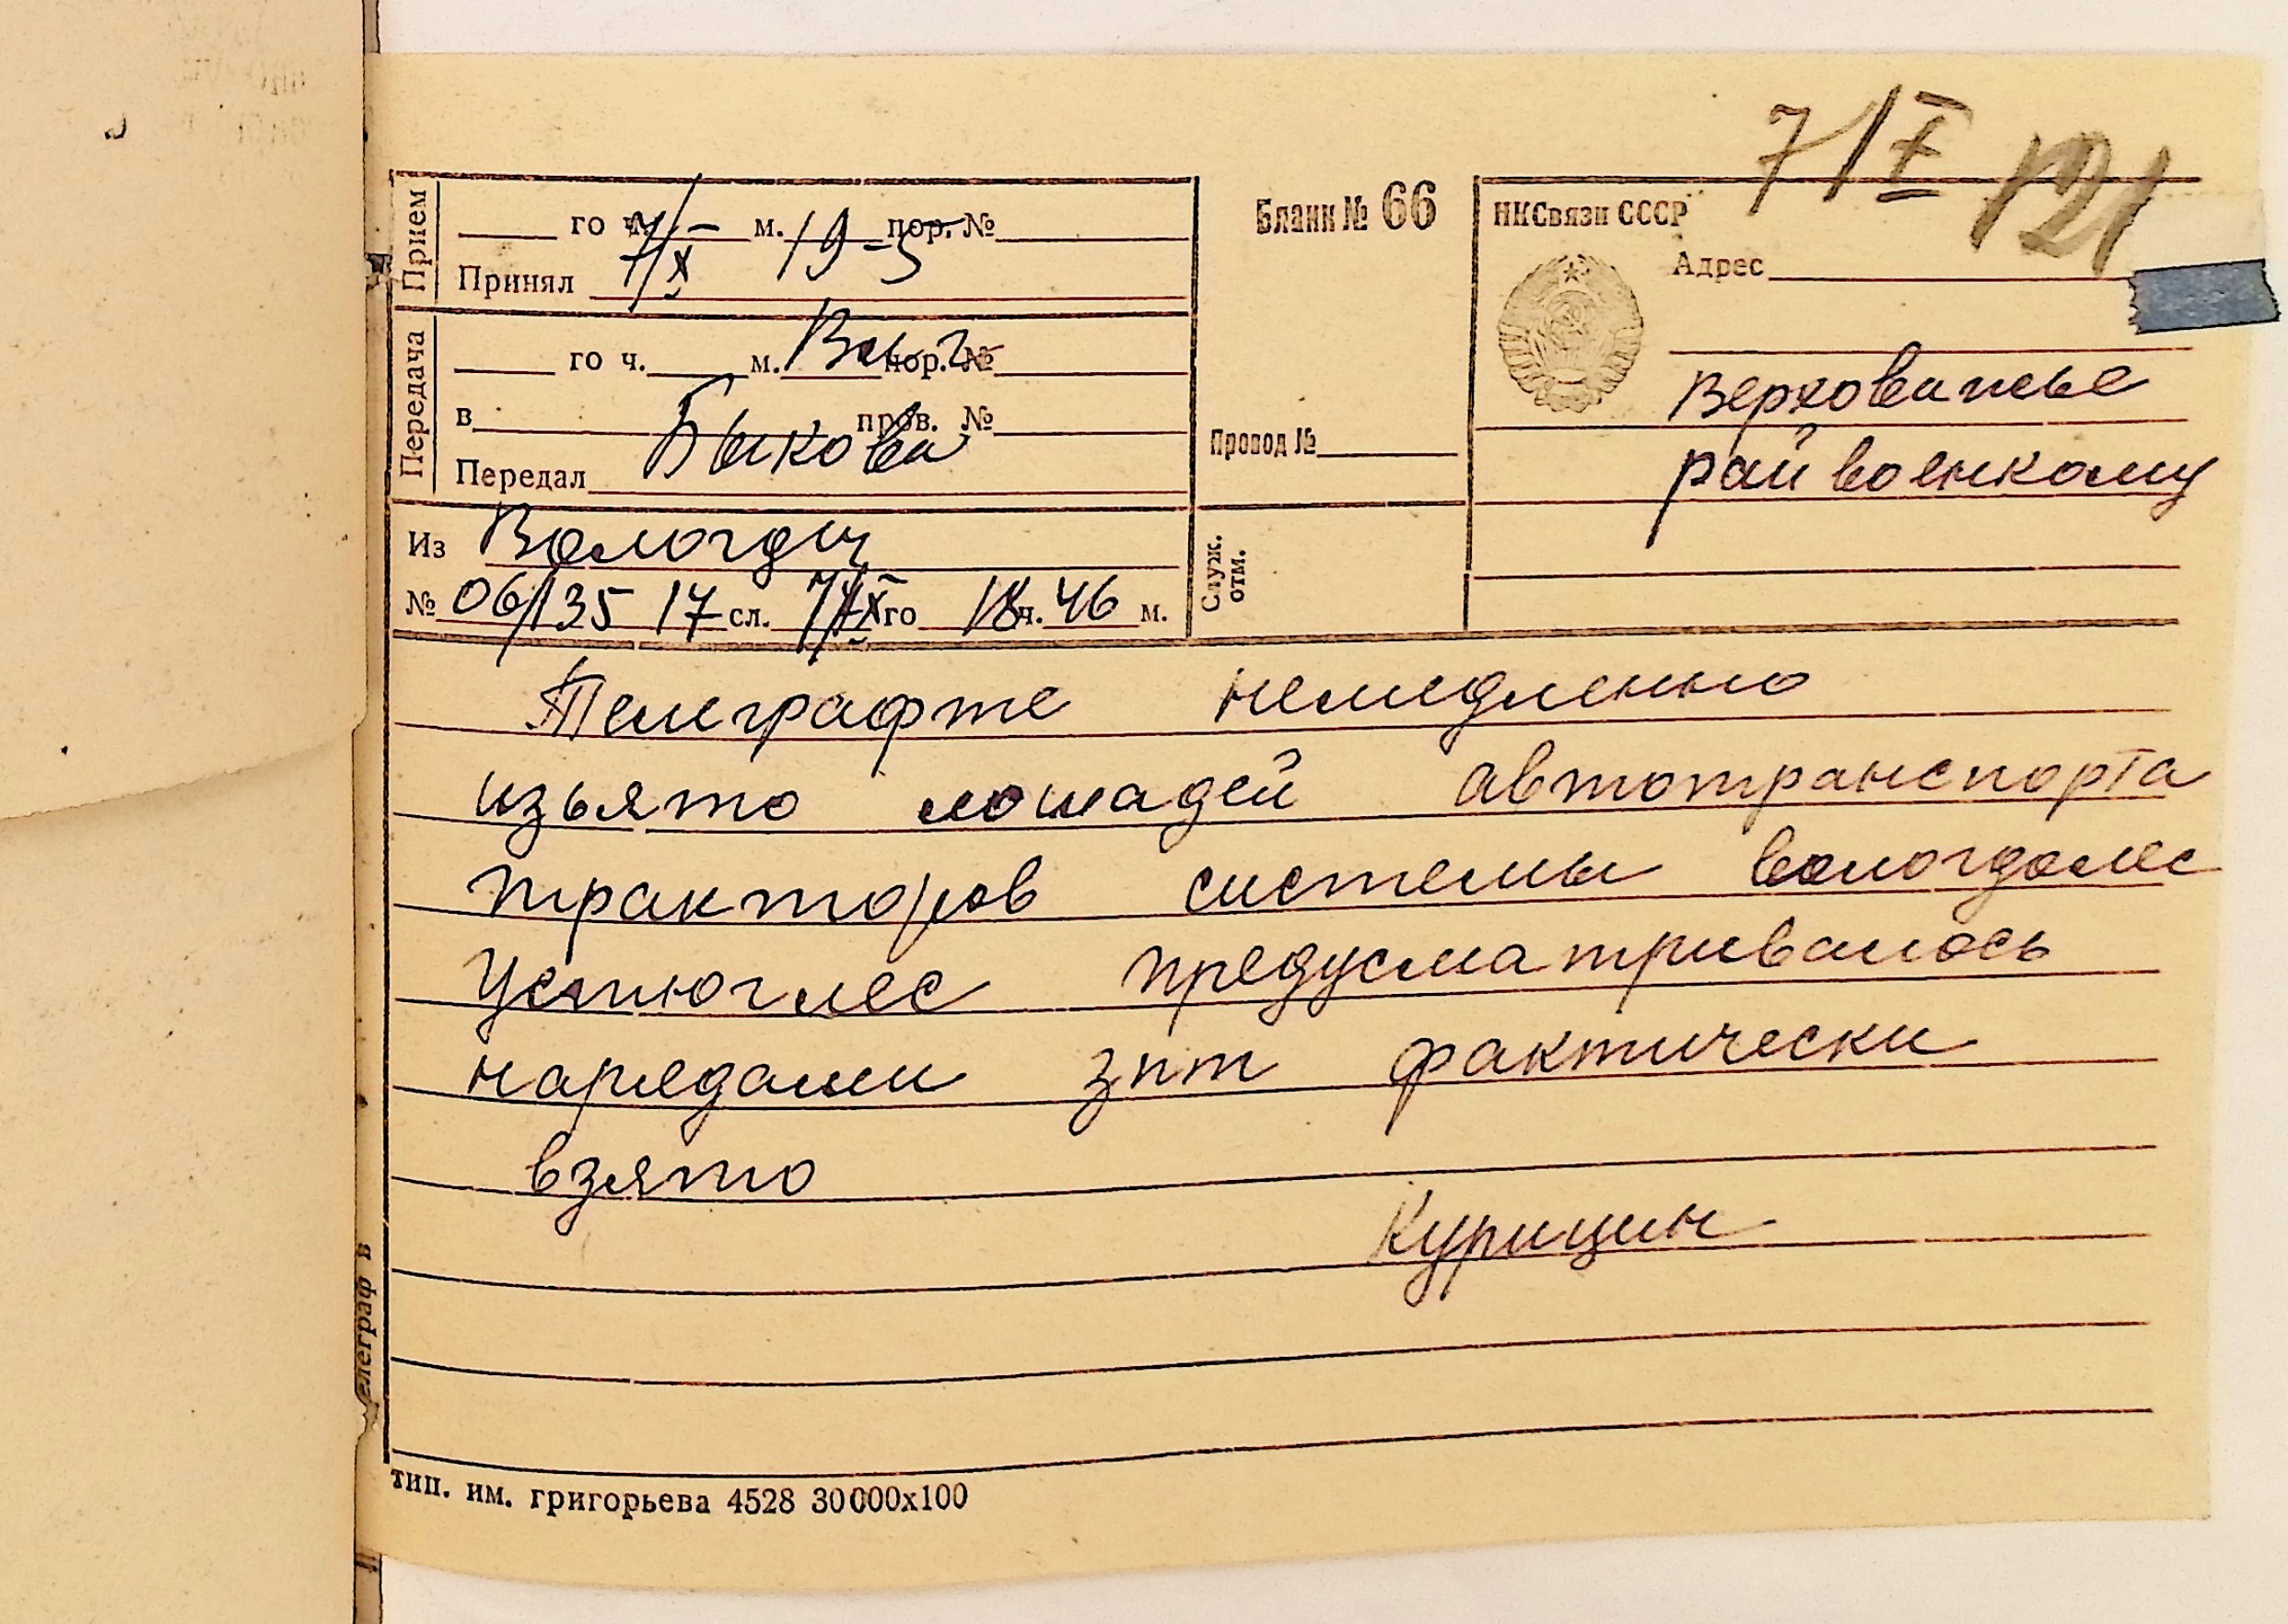 7/X
121
Прием
го ч. м. пор. №
7/X 19-5
Принял
Бланк № 66
НКСвязи СССР
Адрес
Передача
го ч. м. пор. №
в пров. №
Быкова
Передал
Провод №
Верховажье
райвоенкому
Из Вологды
№ 06/135 17 сл. 7/X го 18 ч. 46 м.
Служ. отм.
Телеграфте немедленно
изьято лошадей автотранспорта
тракторов системы вологдолес
Устюглес предусматривалось
нарядами зпт фактически
взято
Курицин
елеграф в
тип. им. григорьева 4528 30000х100